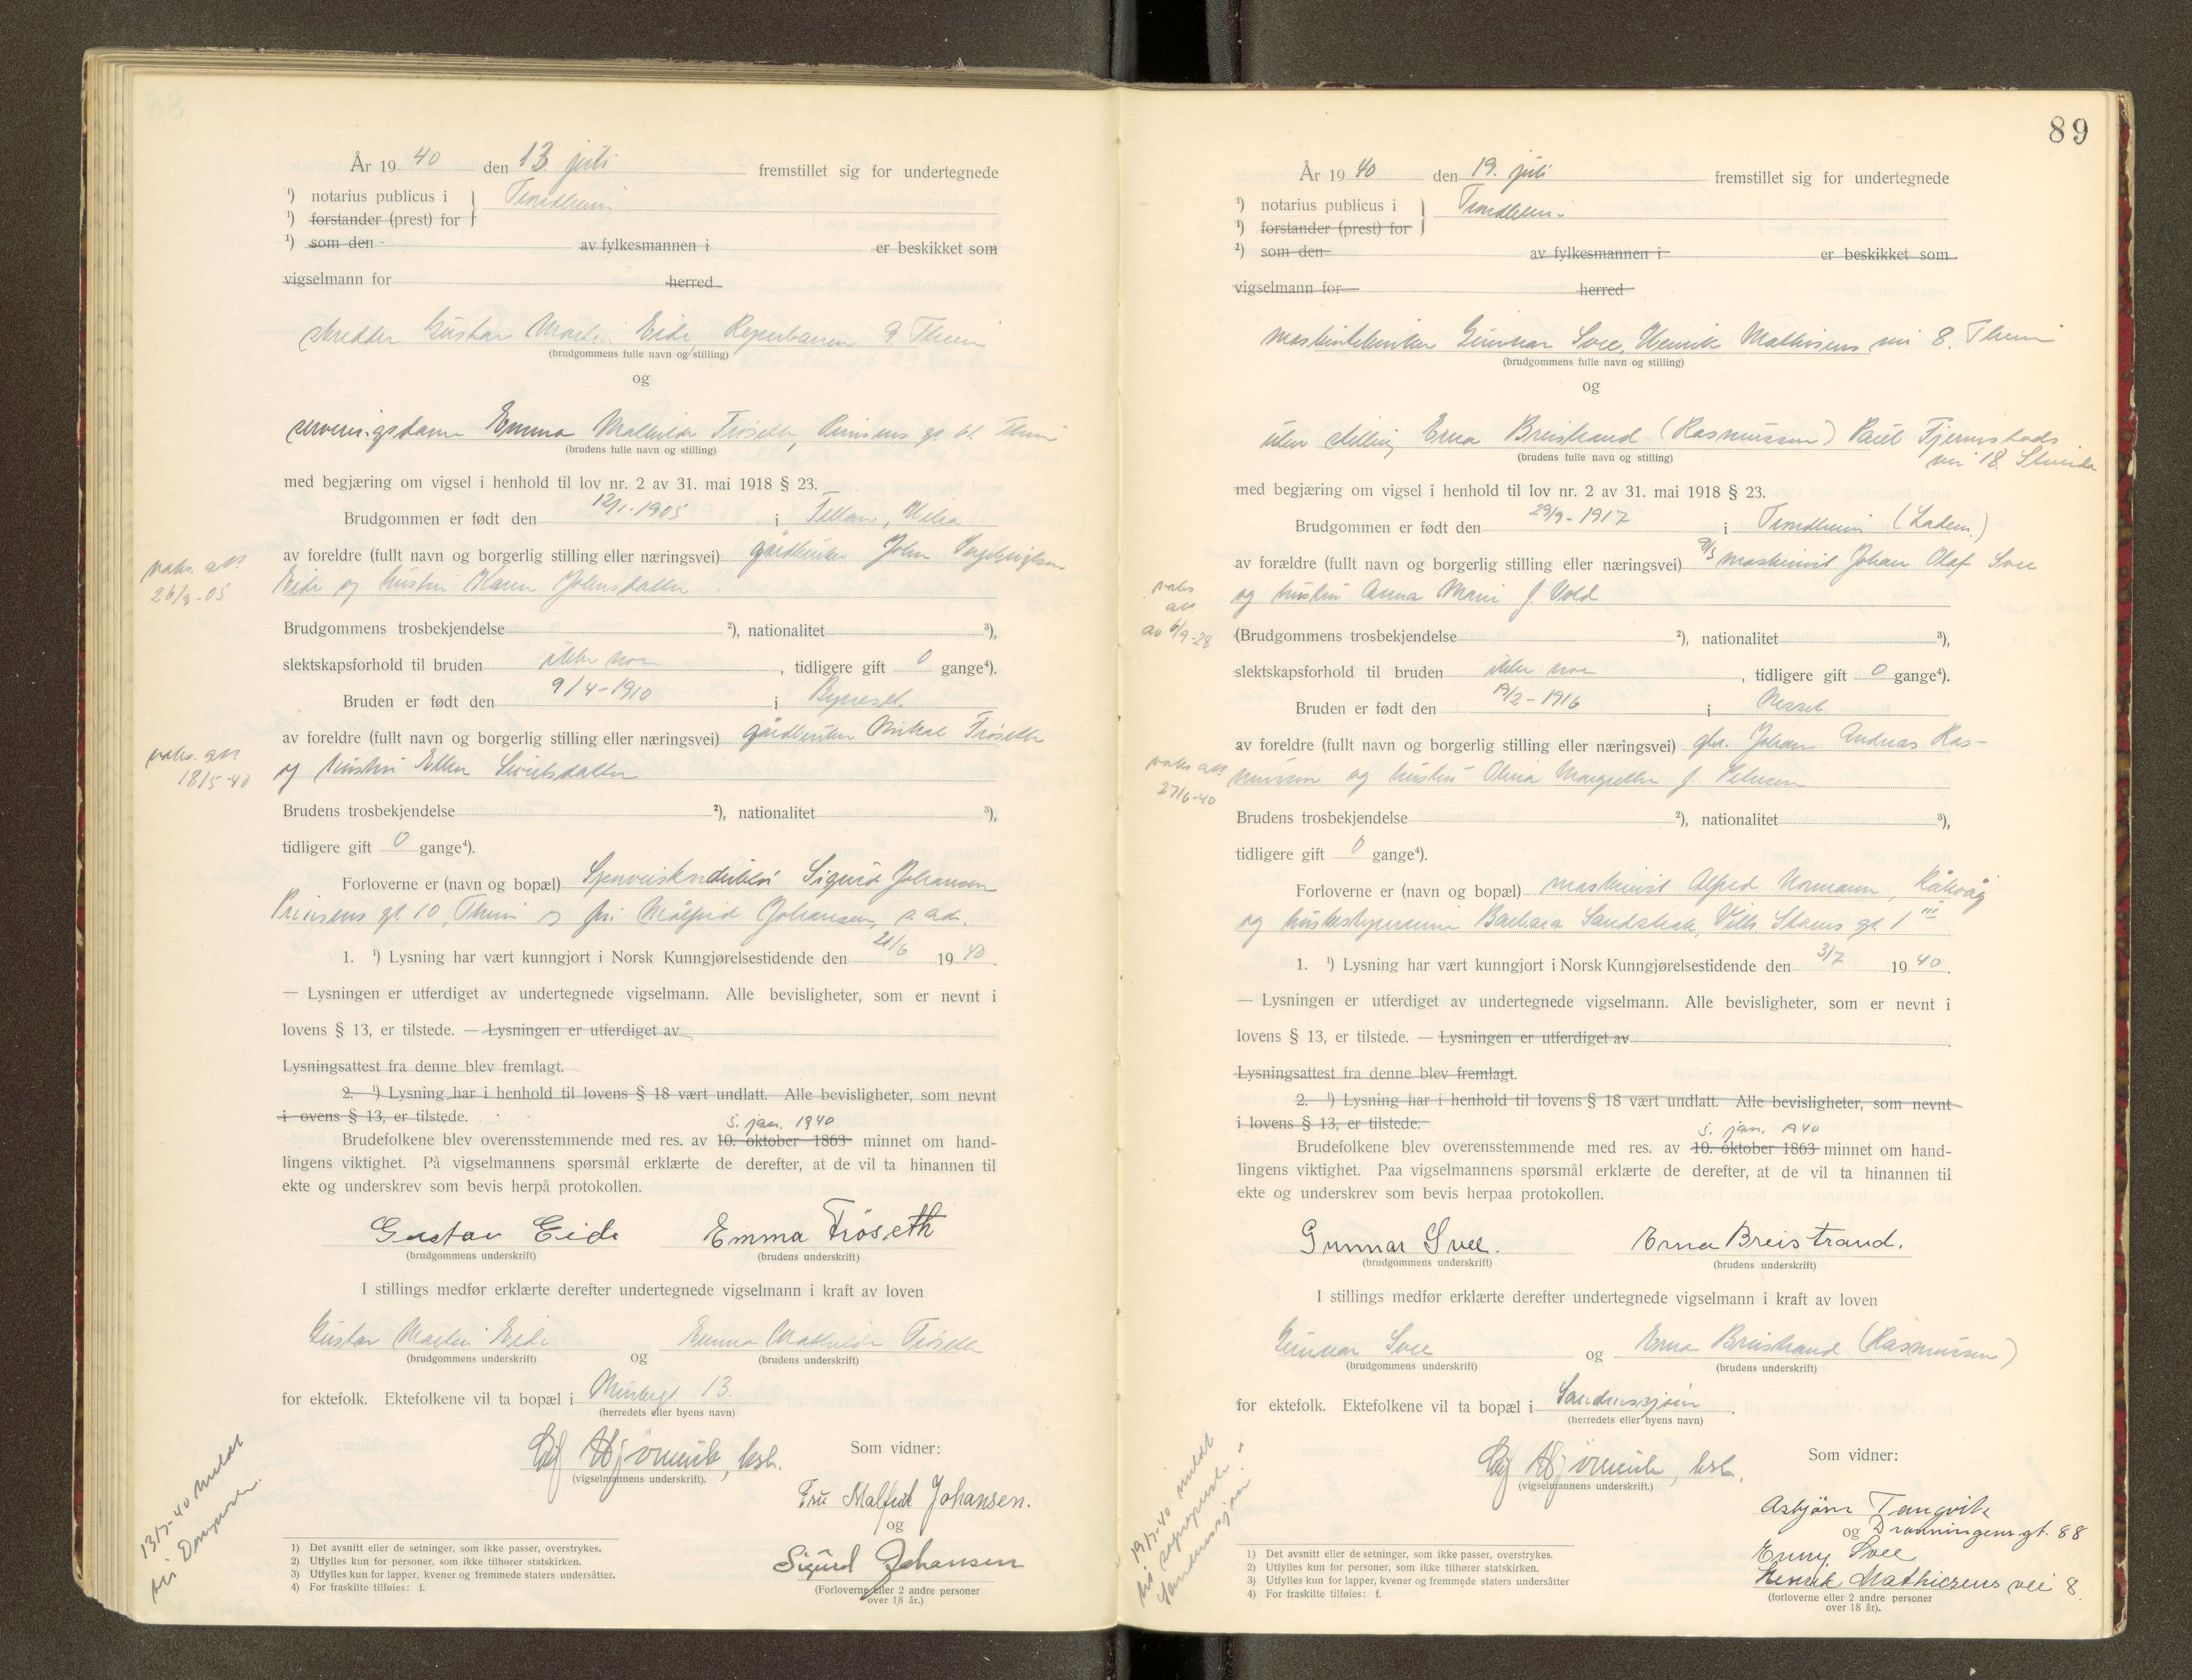 År 19 40 den 13. juli fremstillet sig for undertegnede
¹) notarius publicus i } Trondheim
¹) forstander (prest) for
¹) som den av fylkesmannen i er beskikket som
vigselmann for herred
skredder Gustav Martin Eide, Reperbanen 9. Theim
(brudgommens fulle navn og stilling)
og
serveringsdame Emma Mathilde Trøseth, Prinsens gt. Theim
(brudens fulle navn og stilling)
med begjæring om vigsel i henhold til lov nr. 2 av 31. mai 1918 § 23.
Brudgommen er født den 12/1-1905 i
av foreldre (fullt navn og borgerlig stilling eller næringsvei) gårdbruker John
Eide og hustru Karen Johnsdatter
vaks. att. 26/3-05
Brudgommens trosbekjendelse ²), nationalitet ³),
slektskapsforhold til bruden ikke noe, tidligere gift 0 gange⁴).
Bruden er født den 9/4-1910 i Byneset
av foreldre (fullt navn og borgerlig stilling eller næringsvei) gårdbruker Mikal Trøseth
og hustru Ellen Sivertsdatter
vaks. att. 18/5-40
Brudens trosbekjendelse ²), nationalitet ³),
tidligere gift 0 gange⁴).
Forloverne er (navn og bopæl) Sporveiskonduktør Sigurd Johansen
Prinsens gt. 10, Theim og fru Målfrid Johansen, s. adr.
1. ¹) Lysning har vært kunngjort i Norsk Kunngjørelsestidende den 21/6 19 40.
— Lysningen er utferdiget av undertegnede vigselmann. Alle bevisligheter, som er nevnt i
lovens § 13, er tilstede. — Lysningen er utferdiget av
Lysningsattest fra denne blev fremlagt.
2. ¹) Lysning har i henhold til lovens § 18 vært undlatt. Alle bevisligheter, som nevnt
i ovens § 13, er tilstede.
5. jan. 1940
Brudefolkene blev overensstemmende med res. av 10. oktober 1863 minnet om hand-
lingens viktighet. På vigselmannens spørsmål erklærte de derefter, at de vil ta hinannen til
ekte og underskrev som bevis herpå protokollen.
Gustav Eide Emma Tröseth
(brudgommens underskrift) (brudens underskrift)
I stillings medfør erklærte derefter undertegnede vigselmann i kraft av loven
Gustav Martin Eide og Emma Mathilde Trøseth
(brudgommens underskrift) (brudens underskrift)
for ektefolk. Ektefolkene vil ta bopæl i 13.
(herredets eller byens navn)
(vigselmannens underskrift).
Som vidner:
Fru Malfrid Johansen.
og
Sigurd Johansen
(Forloverne eller 2 andre personer
over 18 år.)
13/7-40 meldt
1) Det avsnitt eller de setninger, som ikke passer, overstrykes.
2) Utfylles kun for personer, som ikke tilhører statskirken.
3) Utfylles kun for lapper, kvener og fremmede staters undersåtter.
4) For fraskilte tilføies: f.
89
År 19 40 den 19. juli fremstillet sig for undertegnede
¹) notarius publicus i } Trondheim.
¹) forstander (prest) for
²) som den av fylkesmannen i er beskikket som
vigselmann for herred
maskintekniker Gunnar Svee, Henrik Mathisens vei 8. Theim
(brudgommens fulle navn og stilling)
og
uten stilling Erna Breistrand (Rasmussen) Paul Fjermstads
vei 18. Strinda
(brudens fulle navn og stilling)
med begjæring om vigsel i henhold til lov nr. 2 av 31. mai 1918 § 23.
Brudgommen er født den 29/9-1917 i Trondheim (Ladem.)
av forældre (fullt navn og borgerlig stilling eller næringsvei) maskinist Johan Olaf Svee
og hustru Anna Marie f. Vold
vaks att av 6/9-28
(Brudgommens trosbekjendelse ²), nationalitet ³),
slektskapsforhold til bruden ikke noe, tidligere gift 0 gange⁴).
Bruden er født den 19/2-1916 i
av foreldre (fullt navn og borgerlig stilling eller næringsvei) gbr. Johan Andreas Ras-
mussen og hustru Olina Margrethe f. Petersen
vaks att 27/6-40
Brudens trosbekjendelse ²), nationalitet ³),
tidligere gift 0 gange⁴).
Forloverne er (navn og bopæl) maskinist Alfred Normann, Råkvåg
og husbestyrerinne Barbara Sandstrak, Vilh. Storms gt. 1 III
1. ¹) Lysning har vært kunngjort i Norsk Kunngjørelsestidende den 3/7 19 40.
— Lysningen er utferdiget av undertegnede vigselmann. Alle bevisligheter, som er nevnt i
lovens § 13, er tilstede. — Lysningen er utferdiget av
Lysningsattest fra denne blev fremlagt.
2. ¹) Lysning har i henhold til lovens § 18 vært undlatt. Alle bevisligheter, som nevnt
i lovens § 13, er tilstede.
5. jan. 1940
Brudefolkene blev overensstemmende med res. av 10. oktober 1863 minnet om hand-
lingens viktighet. Paa vigselmannens spørsmål erklærte de derefter, at de vil ta hinannen til
ekte og underskrev som bevis herpaa protokollen.
Gunnar Svee. Erna Breistrand.
(brudgommens underskrift) (brudens underskrift)
I stillings medfør erklærte derefter undertegnede vigselmann i kraft av loven
Gunnar Svee og Erna Breistrand (Rasmussen)
(brudgommens underskrift) (brudens underskrift)
for ektefolk. Ektefolkene vil ta bopæl i Sandnessjøen.
(herredets eller byens navn)
(vigselmannens underskrift.)
Som vidner:
Asbjørn Tangvik
og Dronningensgt. 88
Enny Svee
Henrik Mathiesens vei 8.
(forloverne eller 2 andre personer
over 18 år).
19/7-40 meldt
til sogneprest i
Sandnessjøen
1) Det avsnitt eller de setninger, som ikke passer, overstrykes.
2) Utfylles kun for personer, som ikke tilhører statskirken.
3) Utfylles kun for lapper, kvener og fremmede staters undersåtter
4) For fraskilte tilføies: f.